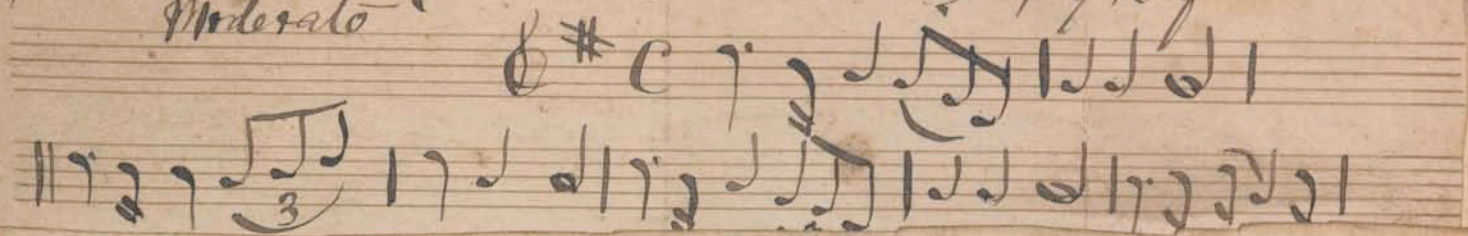 Moderato
3